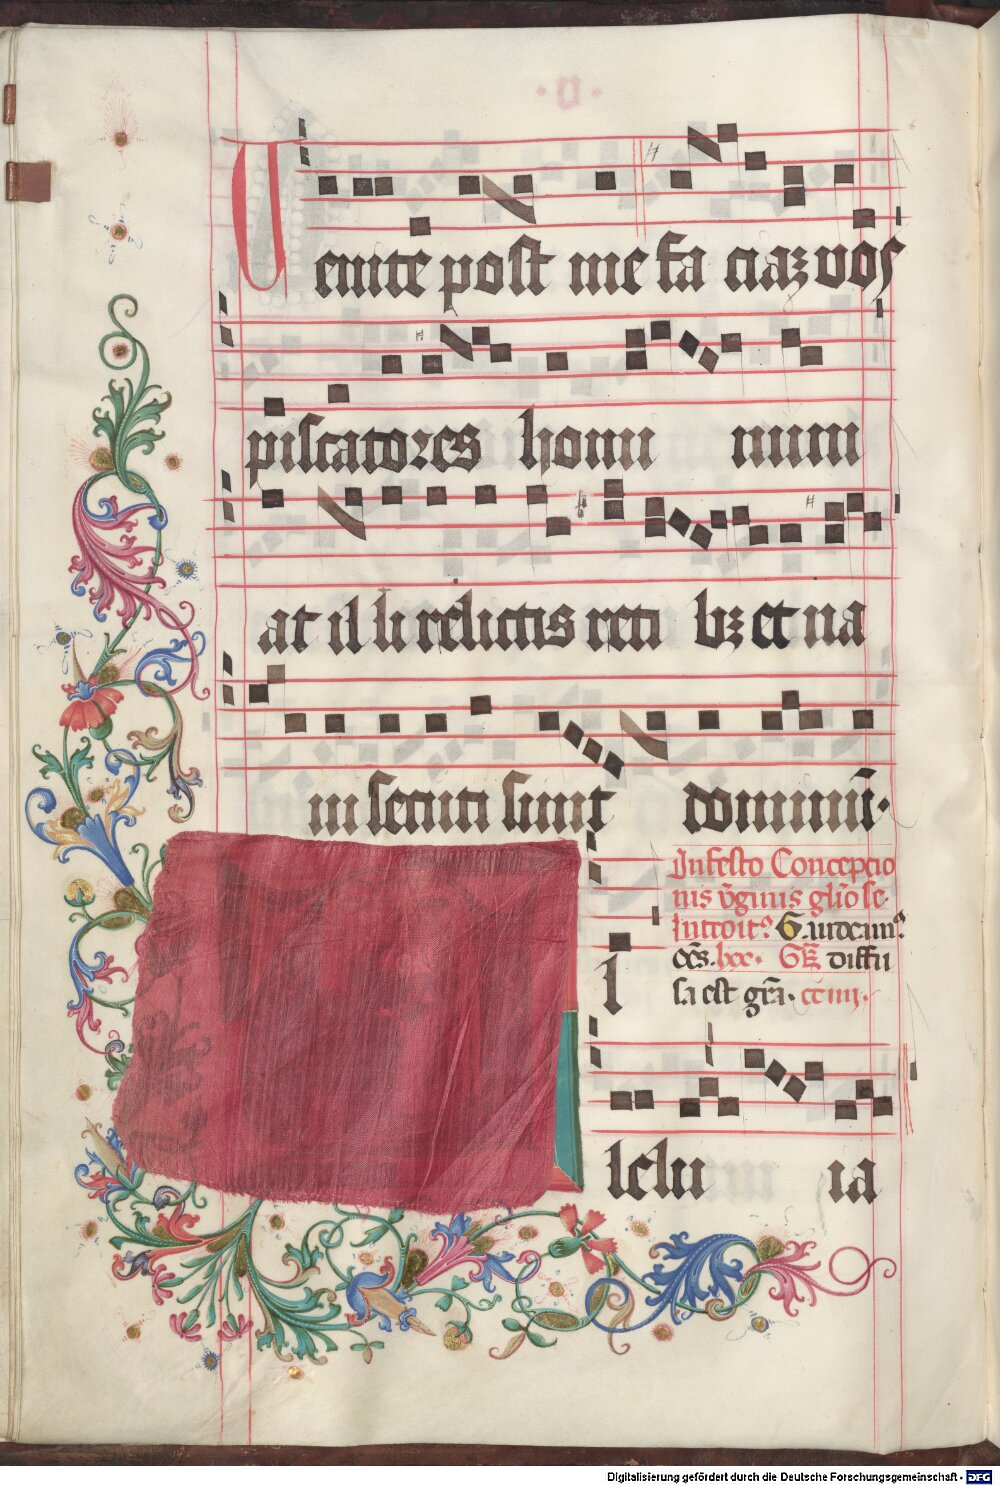 ·v·
Uenite post me fa ciaʒ vos
piscatores homi num
at il li relictis reti bʒ et na
ui secuti sunt dominū·
In festo Concepcio
nis v̄ginis gl̄iose·
Introitꝰ G.
oēs· lxx· GR̄ diffu
sa est gr̄a· cciiij·
l
lelu ia
Digitalisierung gefördert durch die Deutsche Forschungsgemeinschaft - DFG